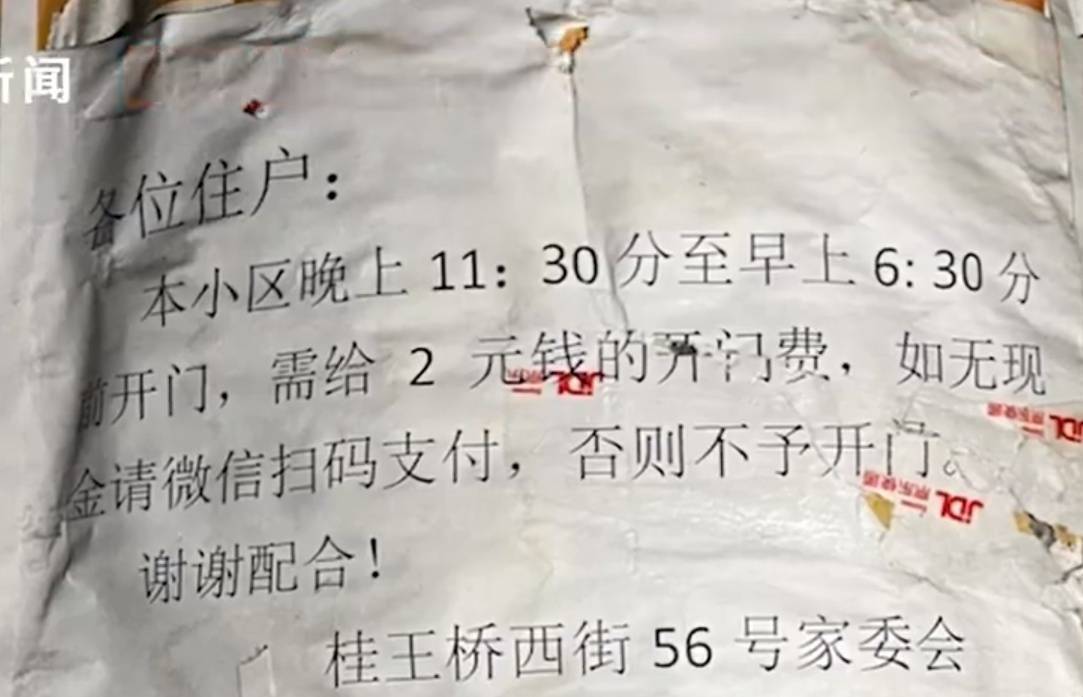 闻
各位住户：
本小区晚上 11：30 分至早上 6:30 分
前开门，需给 2 元钱的开门费，如无现
JDL
京东快递 JDL
金请微信扫码支付，否则不予开门。
京东快递 JDL
谢谢配合！
桂王桥西街 56 号家委会